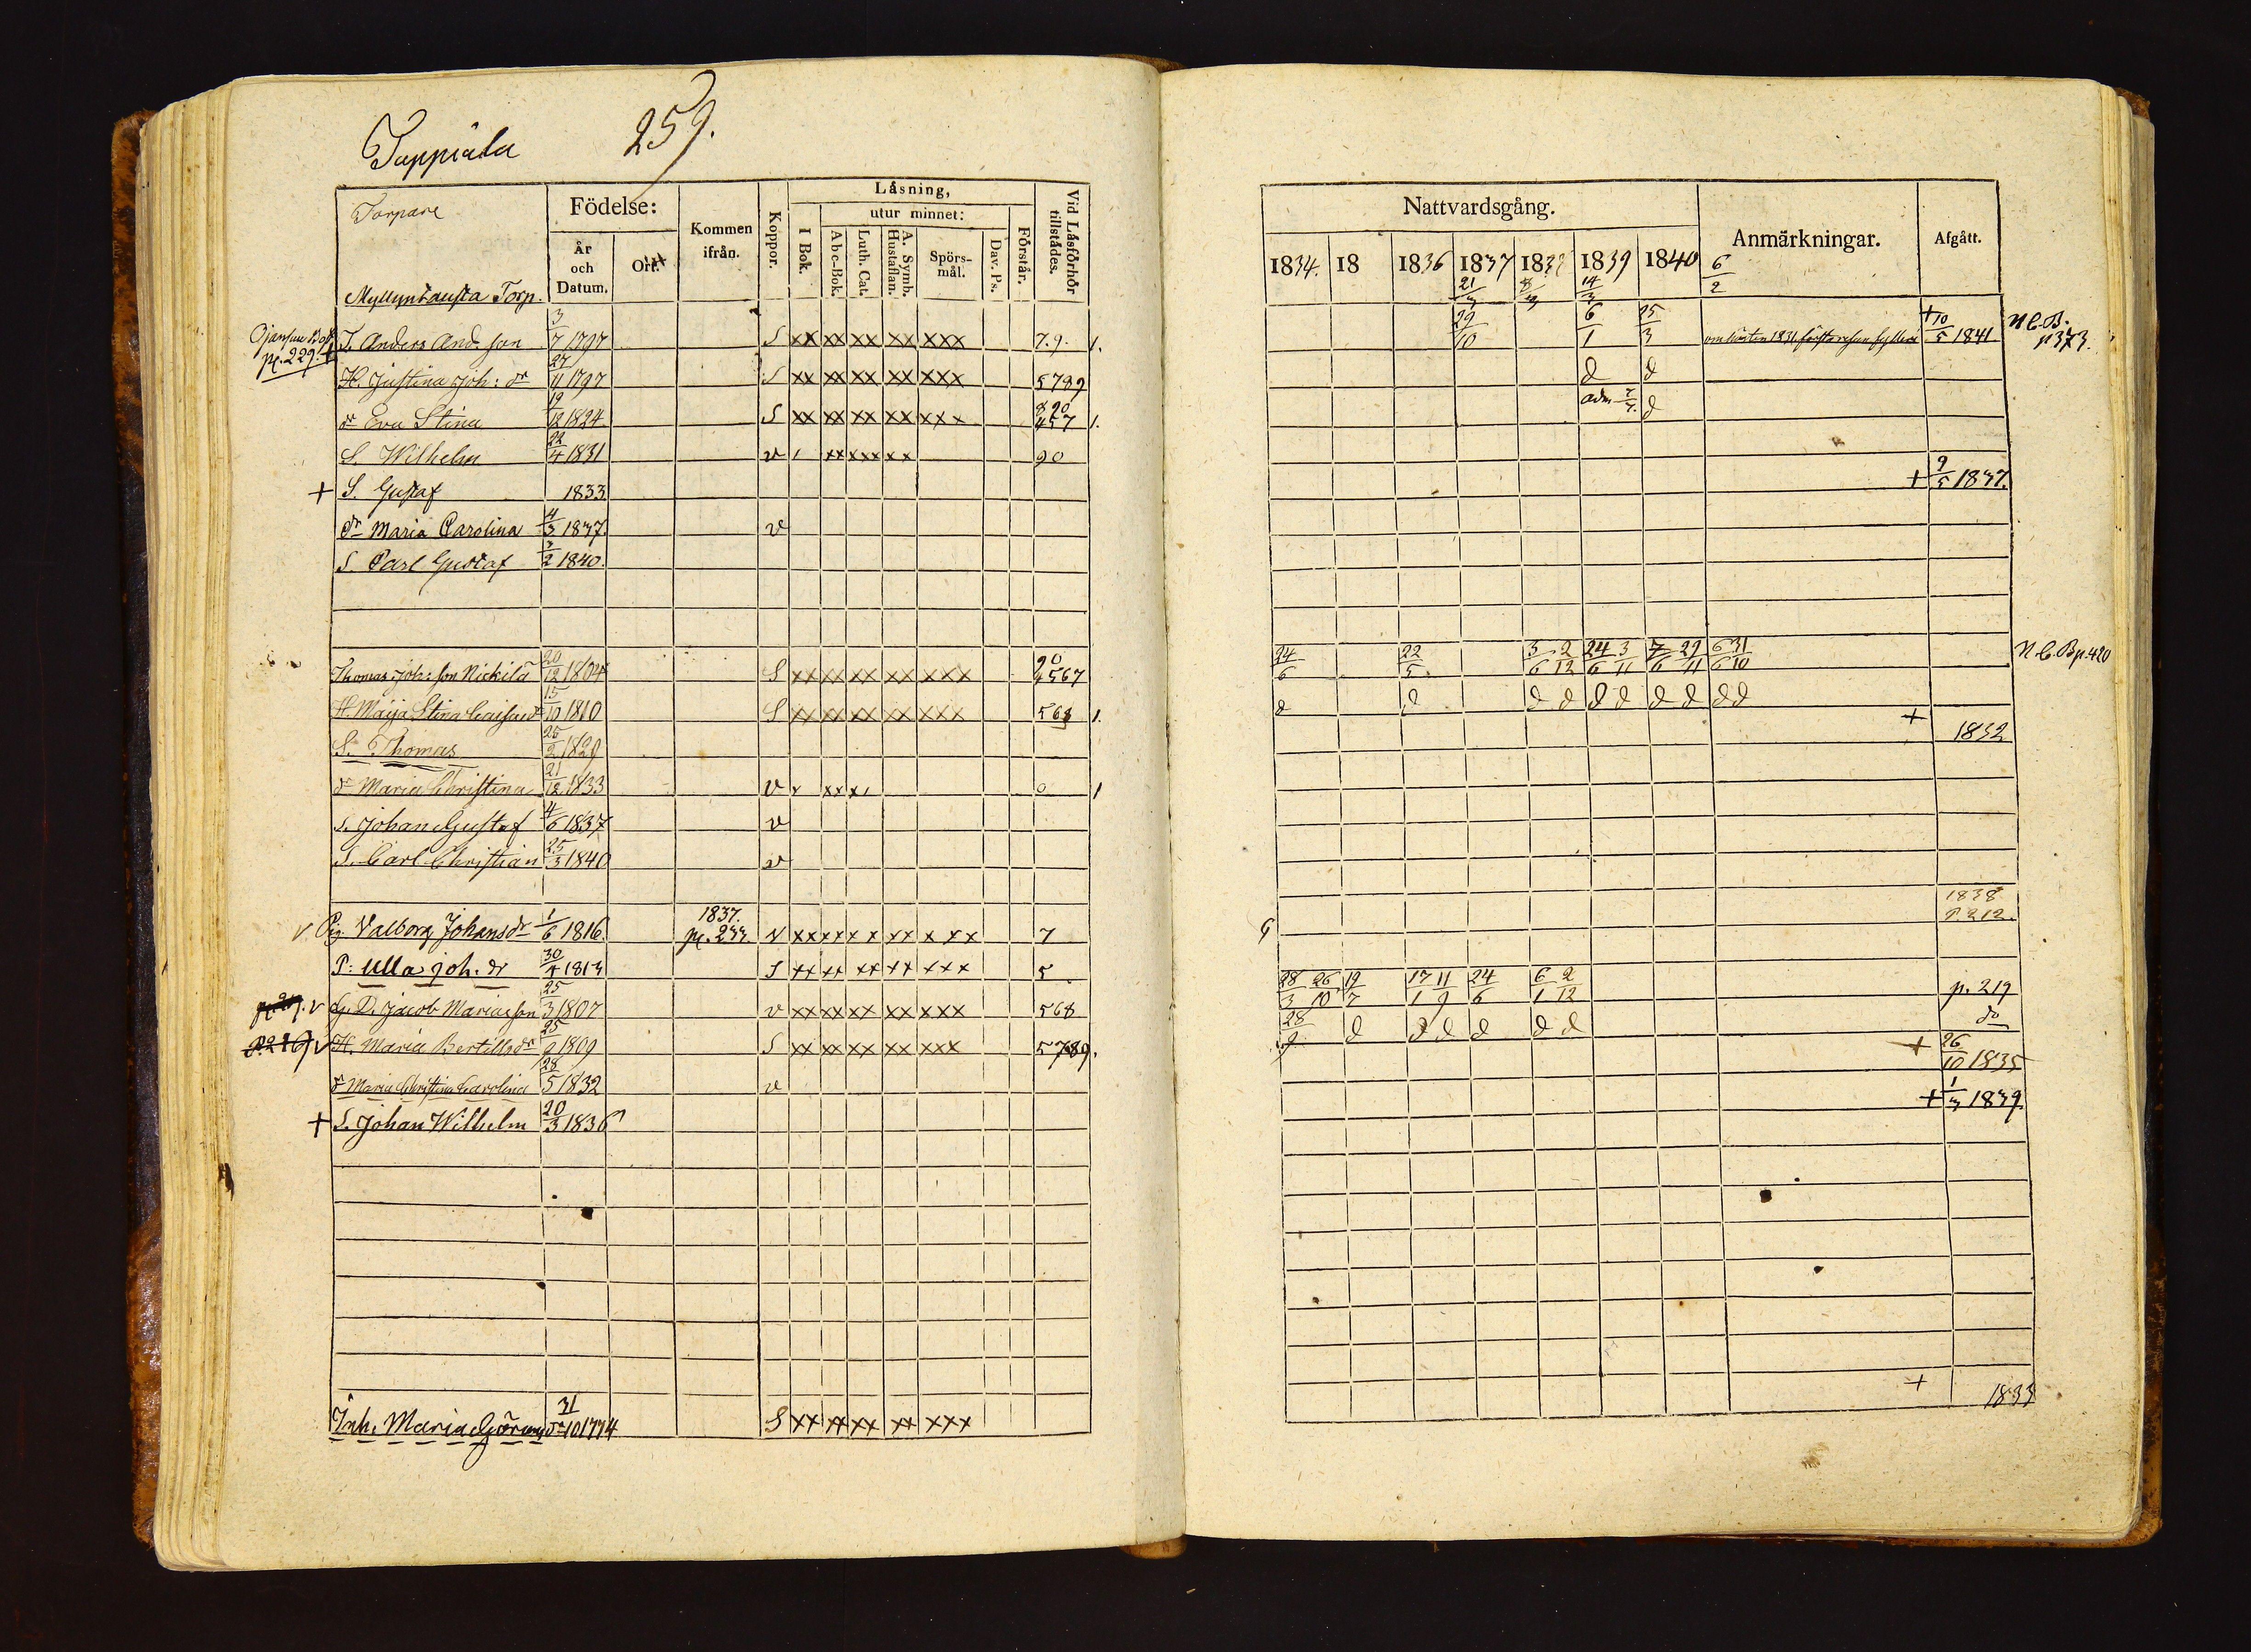 259.
Torpare
Födelse:
År och Datum.
Ort.
Kommen ifrån.
Koppor.
Låsning,
I Bok.
utur minnet:
Abc-Bok.
Luth. Cat.
A. Symb. Hustaflan.
Spörs-mål.
Dav. Ps.
Förstår.
Vid Låsförhör tillstådes.
Myllyntausta Torp.
pg. 229. T. Anders And. son 3/7 1797 S xx xx xx xx xxx 7.9. 1.
H. Justina Joh: dr 27/11 1797 S xx xx xx xx xxx 5789
dr Eva Stina 19/12 1824 S xx xx xx xx xxx 890 457 1.
S. Wilhelm 22/4 1831 v 90
+ S. Gustaf 1833
dr Maria Carolina 4/3 1837. v
S. Carl Gustaf 2 1840.
Thomas Joh: son Nickilä 20/12 1804 S xx xx xx xx xxx 90 4567
H. Maija Stina 15/10 1810 S xx xx xx xx xxx 568 1.
S. Thomas 25/2 1829
dr Maria Christina 21/12 1833 v 0 1
S. Johan Gustaf 4/6 1837 v
S. Carl Christian 25/3 1840 v
v Pig. Valborg Johansdr 1/6 1816. 1837. pg. 233. v xx xx xx xx xxx 7
P: Ulla joh. dr 30/4 1813 S xx xx xx xx xxx 5
v D. Jacob Mariasson 25/3 1807 v xx xx xx xx xxx 568
v H. Maria Bertillsdr 25/9 1809 S xx xx xx xx xxx 5789.
dr Maria Christina Carolina 28/5 1832 v
+ S. Johan Wilhelm 20/3 1836
Inh. Maria Göransdr 31/10 1774 S xx xx xx xx xxx
Nattvardsgång.
Anmärkningar.
Afgått.
1834. 18 1836 1837 1838 1839 1840 6/2
21/3 14/3
29/10 6/1 25/3 + 10/5 1841 N.C.B. p 373.
d d
adm d
+ 9/5 1837.
24/6 22/5 3/6 2/12 24/6 3/11 7/6 29/11 6/6 31/10 N.C.B p. 420
d d d d d d d d d d
+ 1832
1838 P. 212.
28/3 26/10 19/7 17/1 11/9 24/6 6/1 2/12 p. 219
28/9 d d d d d d do
+ 26/10 1835
+ 1/3 1839
+ 1833